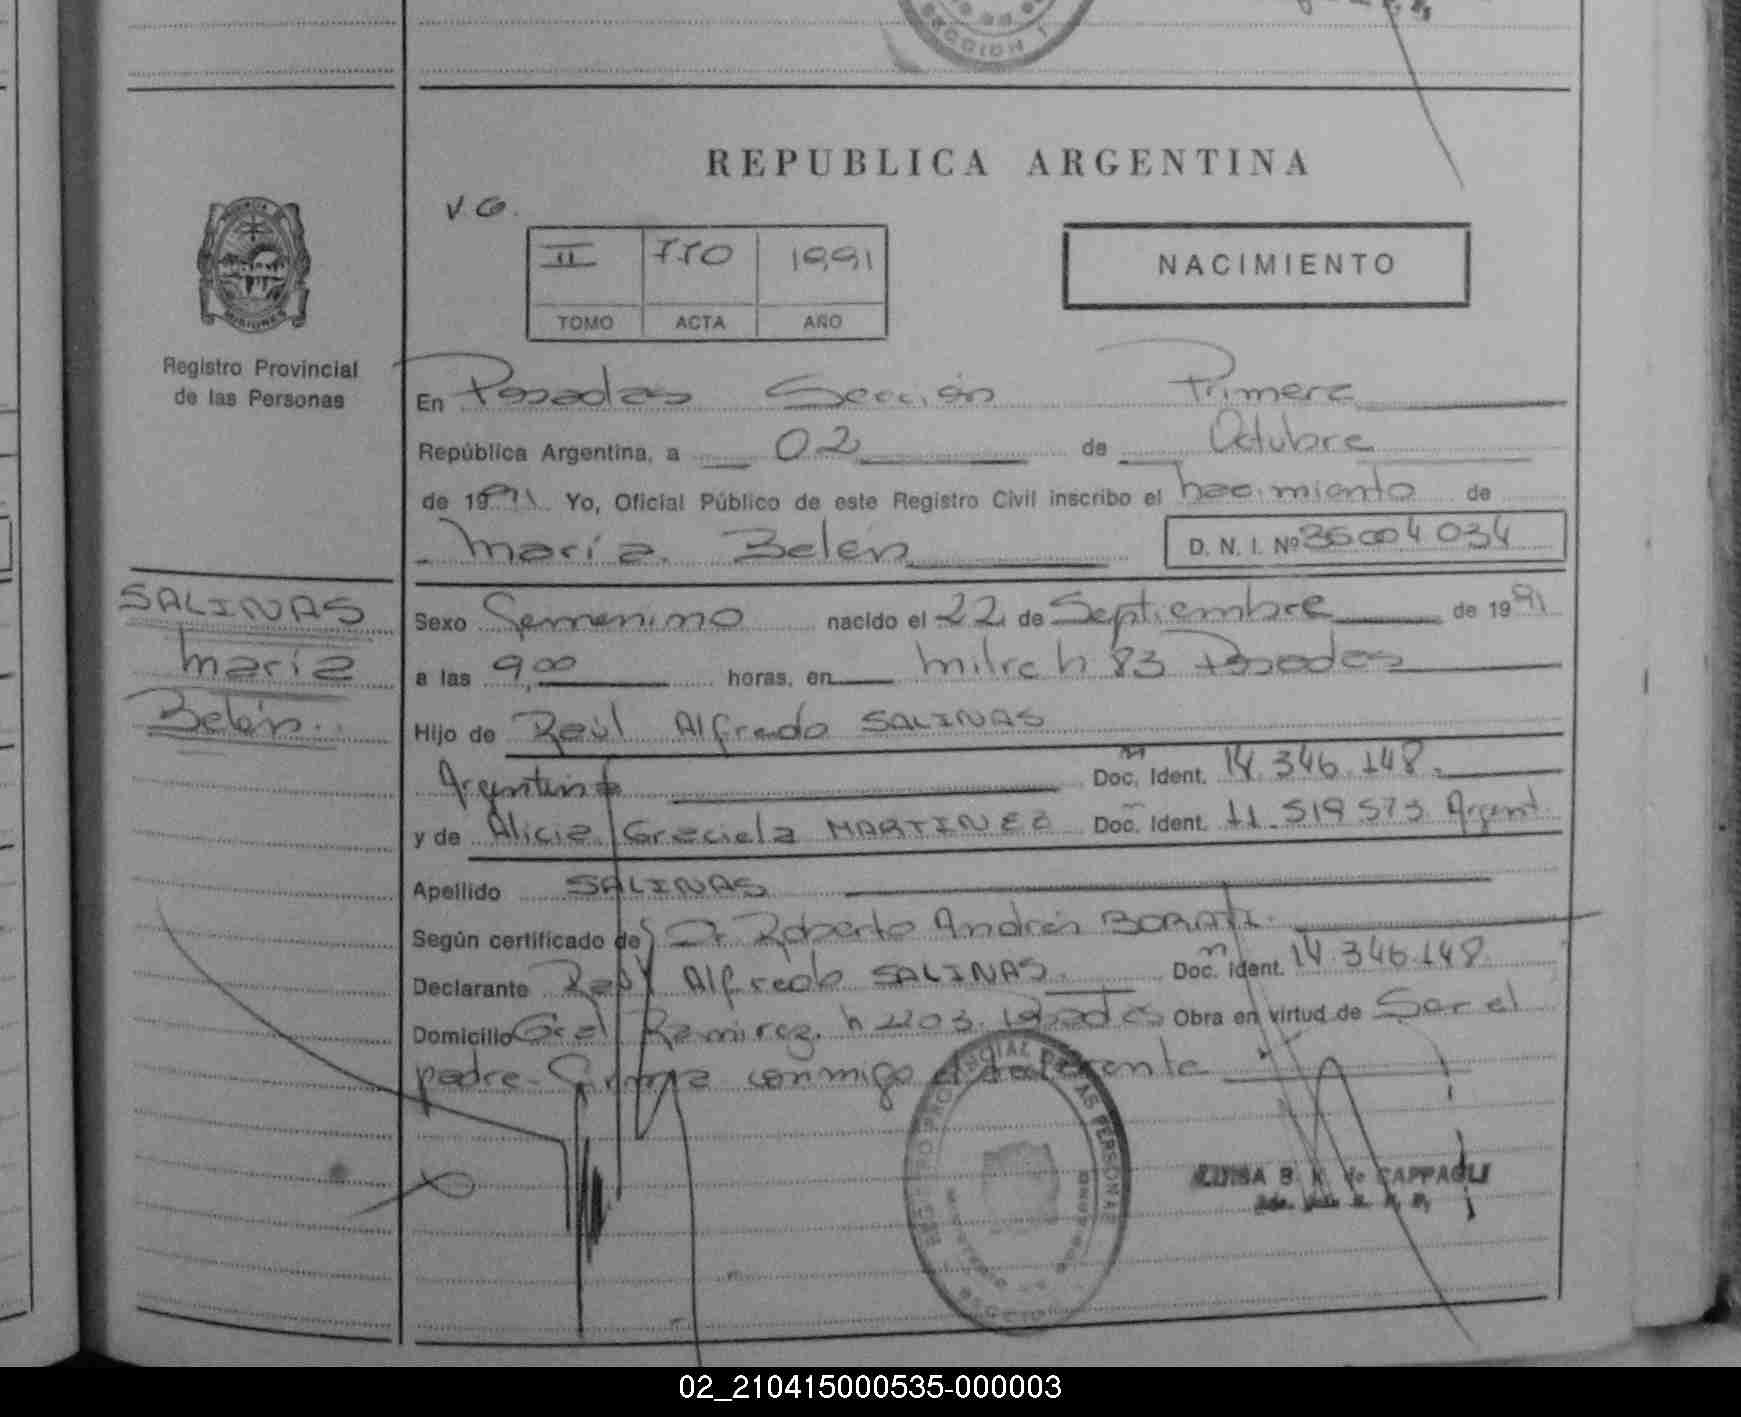 SECCION 1
REPUBLICA ARGENTINA
V.G.
II 770 1991
TOMO ACTA AÑO
NACIMIENTO
PROVINCIA DE
MISIONES
Registro Provincial
de las Personas
En Posadas Sección Primera
República Argentina, a 02 de Octubre
de 1991 Yo, Oficial Público de este Registro Civil inscribo el nacimiento de
María Belén D. N. I. Nº 36004034
SALINAS
María
Belén
Sexo Femenino nacido el 22 de Septiembre de 1991
a las 9,00 horas, en Mitre n 83 Posadas
Hijo de Raúl Alfredo SALINAS
Argentino Doc. Ident. 14.346.148
y de Alicia Graciela MARTINEZ Doc. Ident. 11.519.573 Argent.
Apellido SALINAS
Según certificado de Dr Roberto Andrés
Declarante Raúl Alfredo SALINAS Doc. Ident. 14.346.148
Domicilio Gral Ramirez n 2203 Posadas Obra en virtud de Ser el
padre. Firma conmigo el declarante
REGISTRO PROVINCIAL DE LAS PERSONAS
SECCION
LUISA B. K. de CAPPAGLI
02_210415000535-000003